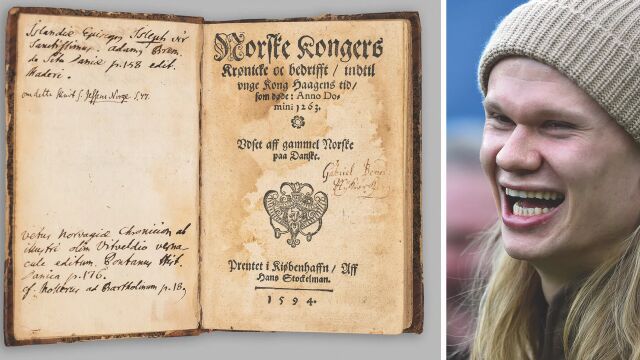 Islandiæ Episcop. Isleph vir
Sanctissimus. adam, Brem.
de Situ Daniæ p. 158 edit.
Maderi.
om dette skrift s. Jessens Norge. S. 47.
vetus Norvagiæ Chronicion ab
illustri olim Vitveldio verna-
cule editum. Pontanus Hist.
Danica p. 176.
cf. Mollerus ad Bartholinum p. 18,
Norske Kongers
Krønicke oc bedrifft / indtil
vnge Kong Haagens tid /
som døde: Anno Do-
mini 1263.
Vdset aff gammel Norske
paa Danske.
Gabriel
Prentet i Kiøbenhaffn / Aff
Hans Stockelman.
1594.